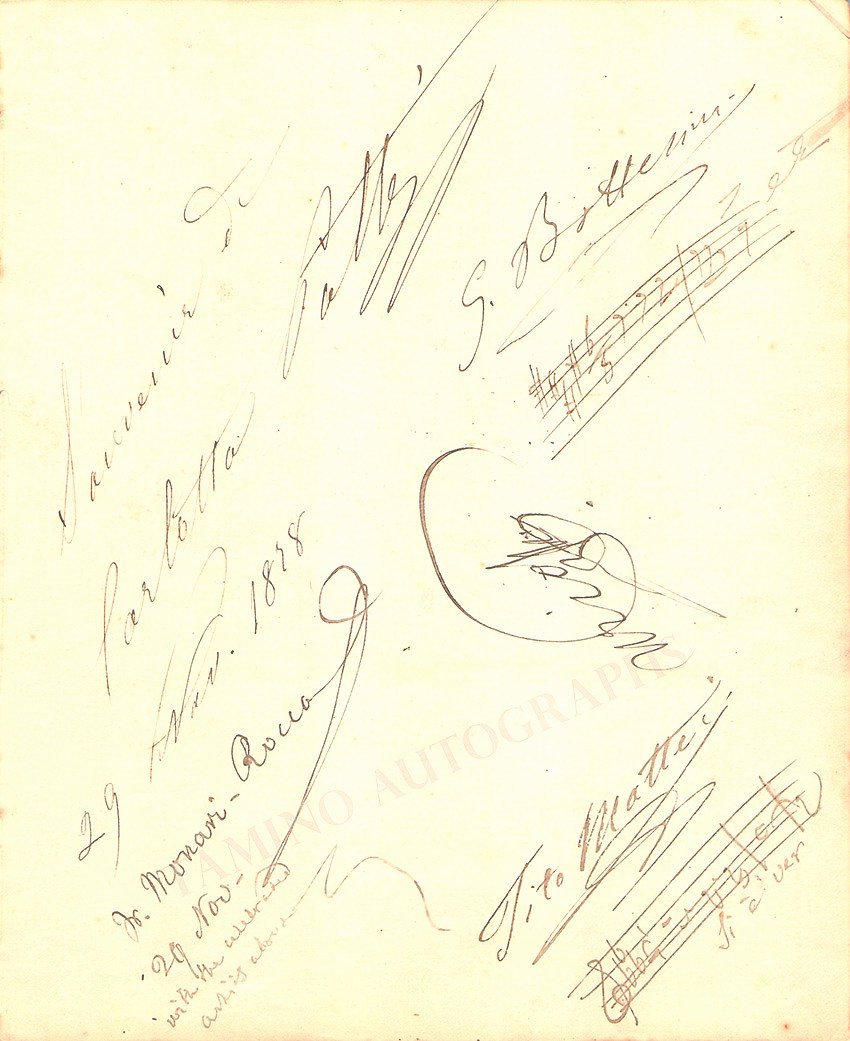 Souvenir de
Carlotta Patti
29 Nov. 1878
Fr. Monari-Rocca
29 Nov-
with the celebrated
artists above
G. Bottesini
Tito Mattei
TAMINO AUTOGRAPHS